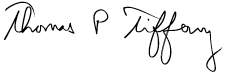 Thomas P Tiffany